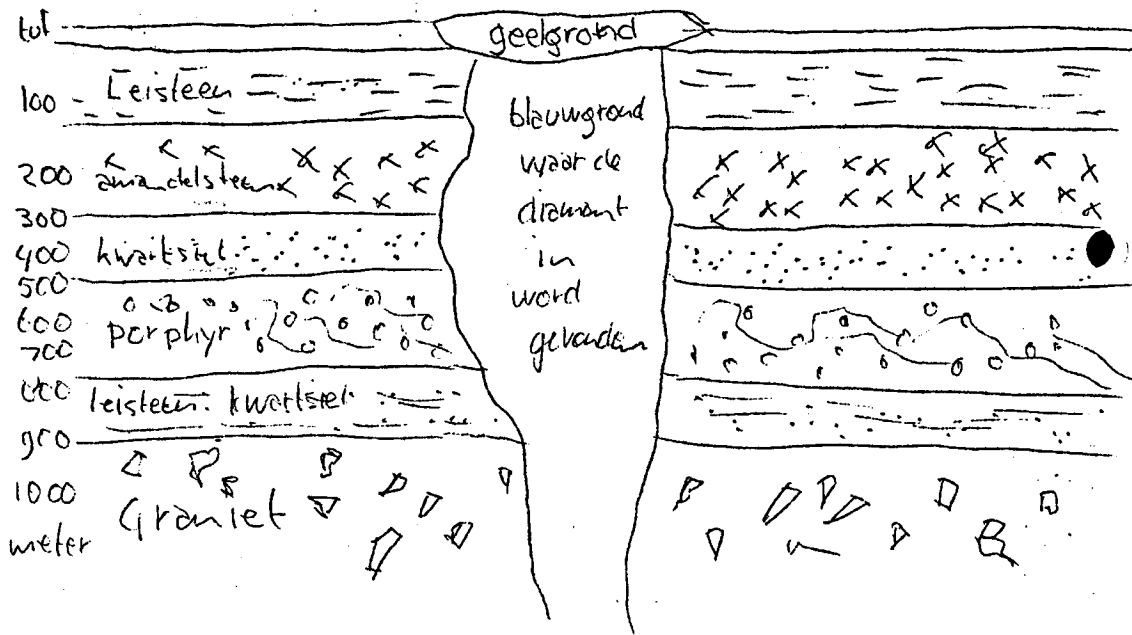 tuf
geelgrond
100 Leisteen
200 amandelsteen
300
400 kwartsiet
500
600 porphyr
700
leisteen. kwartsiet
900
1000
meter
Graniet
blauwgrond
waar de
diamant
in
word
gevonden